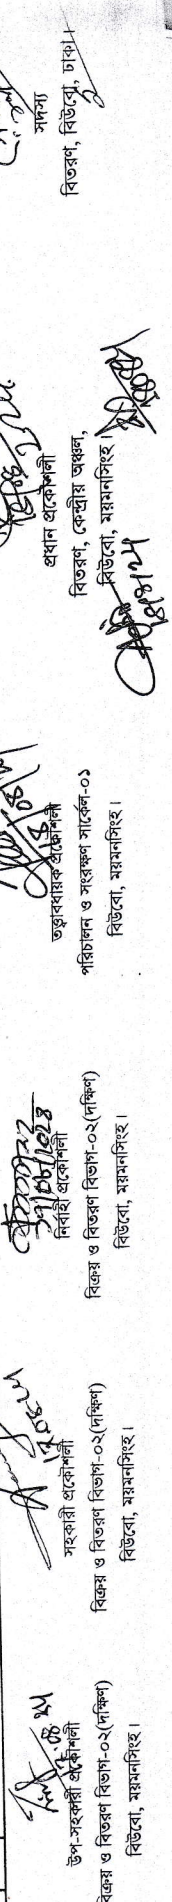 উপ-সহকারী প্রকৌশলী
বিক্রয় ও বিতরণ বিভাগ-০২(দক্ষিণ)
বিউবো, ময়মনসিংহ।
সহকারী প্রকৌশলী
বিক্রয় ও বিতরণ বিভাগ-০২(দক্ষিণ)
বিউবো, ময়মনসিংহ।
নির্বাহী প্রকৌশলী
বিক্রয় ও বিতরণ বিভাগ-০২(দক্ষিণ)
বিউবো, ময়মনসিংহ।
তত্ত্বাবধায়ক প্রকৌশলী
পরিচালন ও সংরক্ষণ সার্কেল-০১
বিউবো, ময়মনসিংহ।
প্রধান প্রকৌশলী
বিতরণ, কেন্দ্রীয় অঞ্চল,
বিউবো, ময়মনসিংহ।
সদস্য
বিতরণ, বিউবো, ঢাকা।